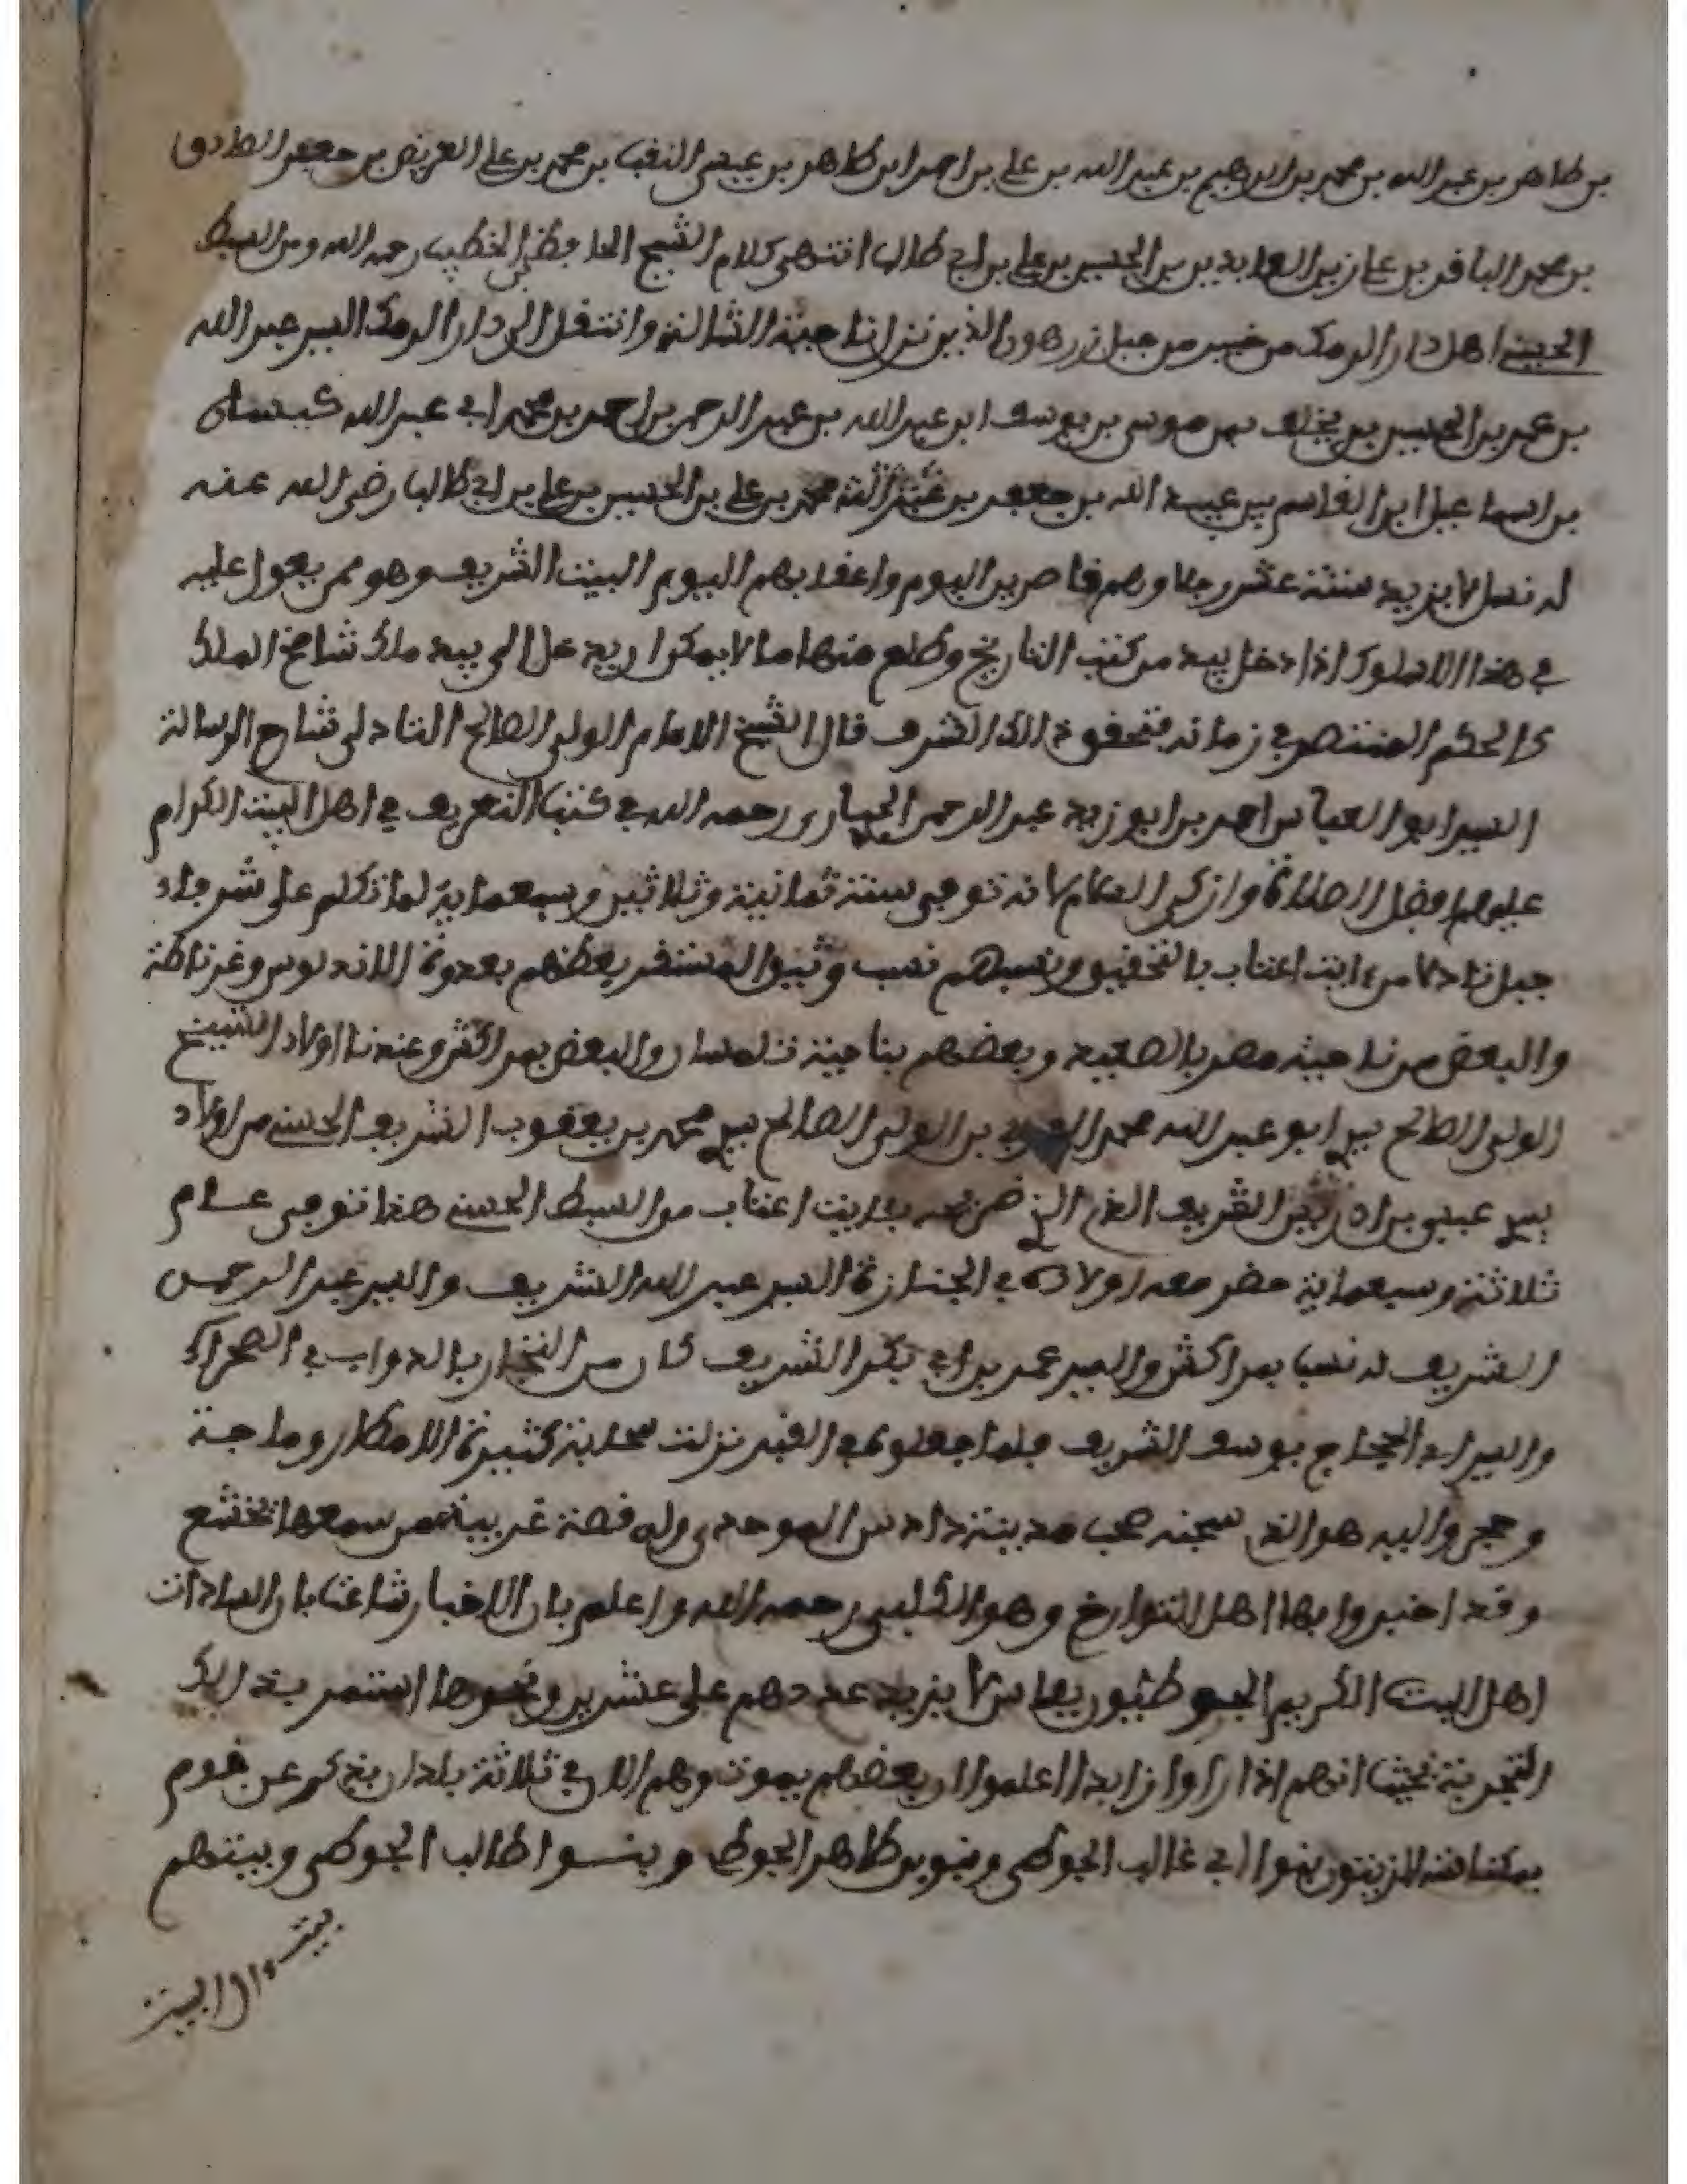 بن طاهر بن عبد الله بن محمد بن ابراهيم بن عبد الله بن علي بن احمد ابن طاهر بن عيسى النقيب بن محمد بن علي العريض بن جعفر الصادق
بن محمد الباقر بن علي زين العابدين بن الحسين بن علي بن ابي طالب انتهى كلام الشيخ الحافظ الخطيب رحمه الله ومن السبط
الحسيني اهل دار الرمك من خيبر من جبل زرهون الذين نزلنا حية الثالثة وانتقل الى دار الرمك السيد عبد الله
بن عمر بن الحسين بن يخلف بن موسى بن يوسف ابن عبد الله بن عبد الرحمن بن احمد بن محمد ابي عبد الله
بن اسماعيل ابن القاسم بن عبد الله بن جعفر بن محمد بن علي بن الحسين بن علي بن ابي طالب رضي الله عنه
له نسل لا يزيد ستة عشر رجلا وهم قاصرين اليوم واعقابهم اليوم البيت الشريف وهو ممن يعول عليه
في هذا السلوك اذا دخل بيده من كتب التاريخ وطلع منها ما لا يمكن ان يدخل الى بيد ملك شامخ الملك
كالحكم المنتصر في زمانه فتحقق ذالك الشرف قال الشيخ الامام الولي الصالح التادلي شارح الرسالة
السيد ابو العباس احمد بن ابو زيد عبد الرحمن رحمه الله في كتب التعريف في اهل البيت الكرام
عليهم افضل الصلاة وازكى السلام لانه توفي سنة ثمانية وثلاثين وسبعماية لما تكلم على شرفاء
جبل تادلا من ايت اعتاب بالتحقيق ونسبهم نسب وثيق المستقر بعضهم بعدوة الاندلوس وغرناطة
والبعض من ناحية مصر بالصعيد وبعضهم بناحية تلمسان والبعض بمراكش وعندنا اولاد الشيخ
الولي الصالح سيد ابو عبد الله محمد بن الولي الصالح سيد محمد بن يعقوب الشريف الحسني من اولاد
سيد عيسى بن ادريس الشريف الذي ضريحه بايت اعتاب من السبط الحسني هذا توفي عام
ثلاثة وسبعماية حضر معه اولاده في الجنازة السيد عبد الله الشريف والسيد عبد الرحمن
الشريف له نسب بمراكش والسيد عمر بن ابي بكر الشريف كان من التجار بالدواب في الصحراء
والسيد ابي الحجاج يوسف الشريف فلما جعلوه في القبر نزلت سحابة كثيرة الامطار وماجة
وحجر واليه هو الذي سجنه صحب مدينة دادس الموحدي وله قصة غريبة من سمعها تخشع
وقد اخبروا بها اهل التوارخ وهو الكلبي رحمه الله واعلم بان الاخبار شاعت بان السادات
اهل البيت الكريم الجوطيون بفاس لا يزيد عددهم على عشرين ونحوها استمر بذالك
التجربة بحيث انهم اذا راوا زايدا اعلموا ان بعضهم يموت وهم الان في ثلاثة بلدان يذكر عن قوم
بمكناسة الزيتون بنوا ابي غالب الجوطي وبنو بن طاهر الجوطي وبنوا طالب الجوطي وبيتهم